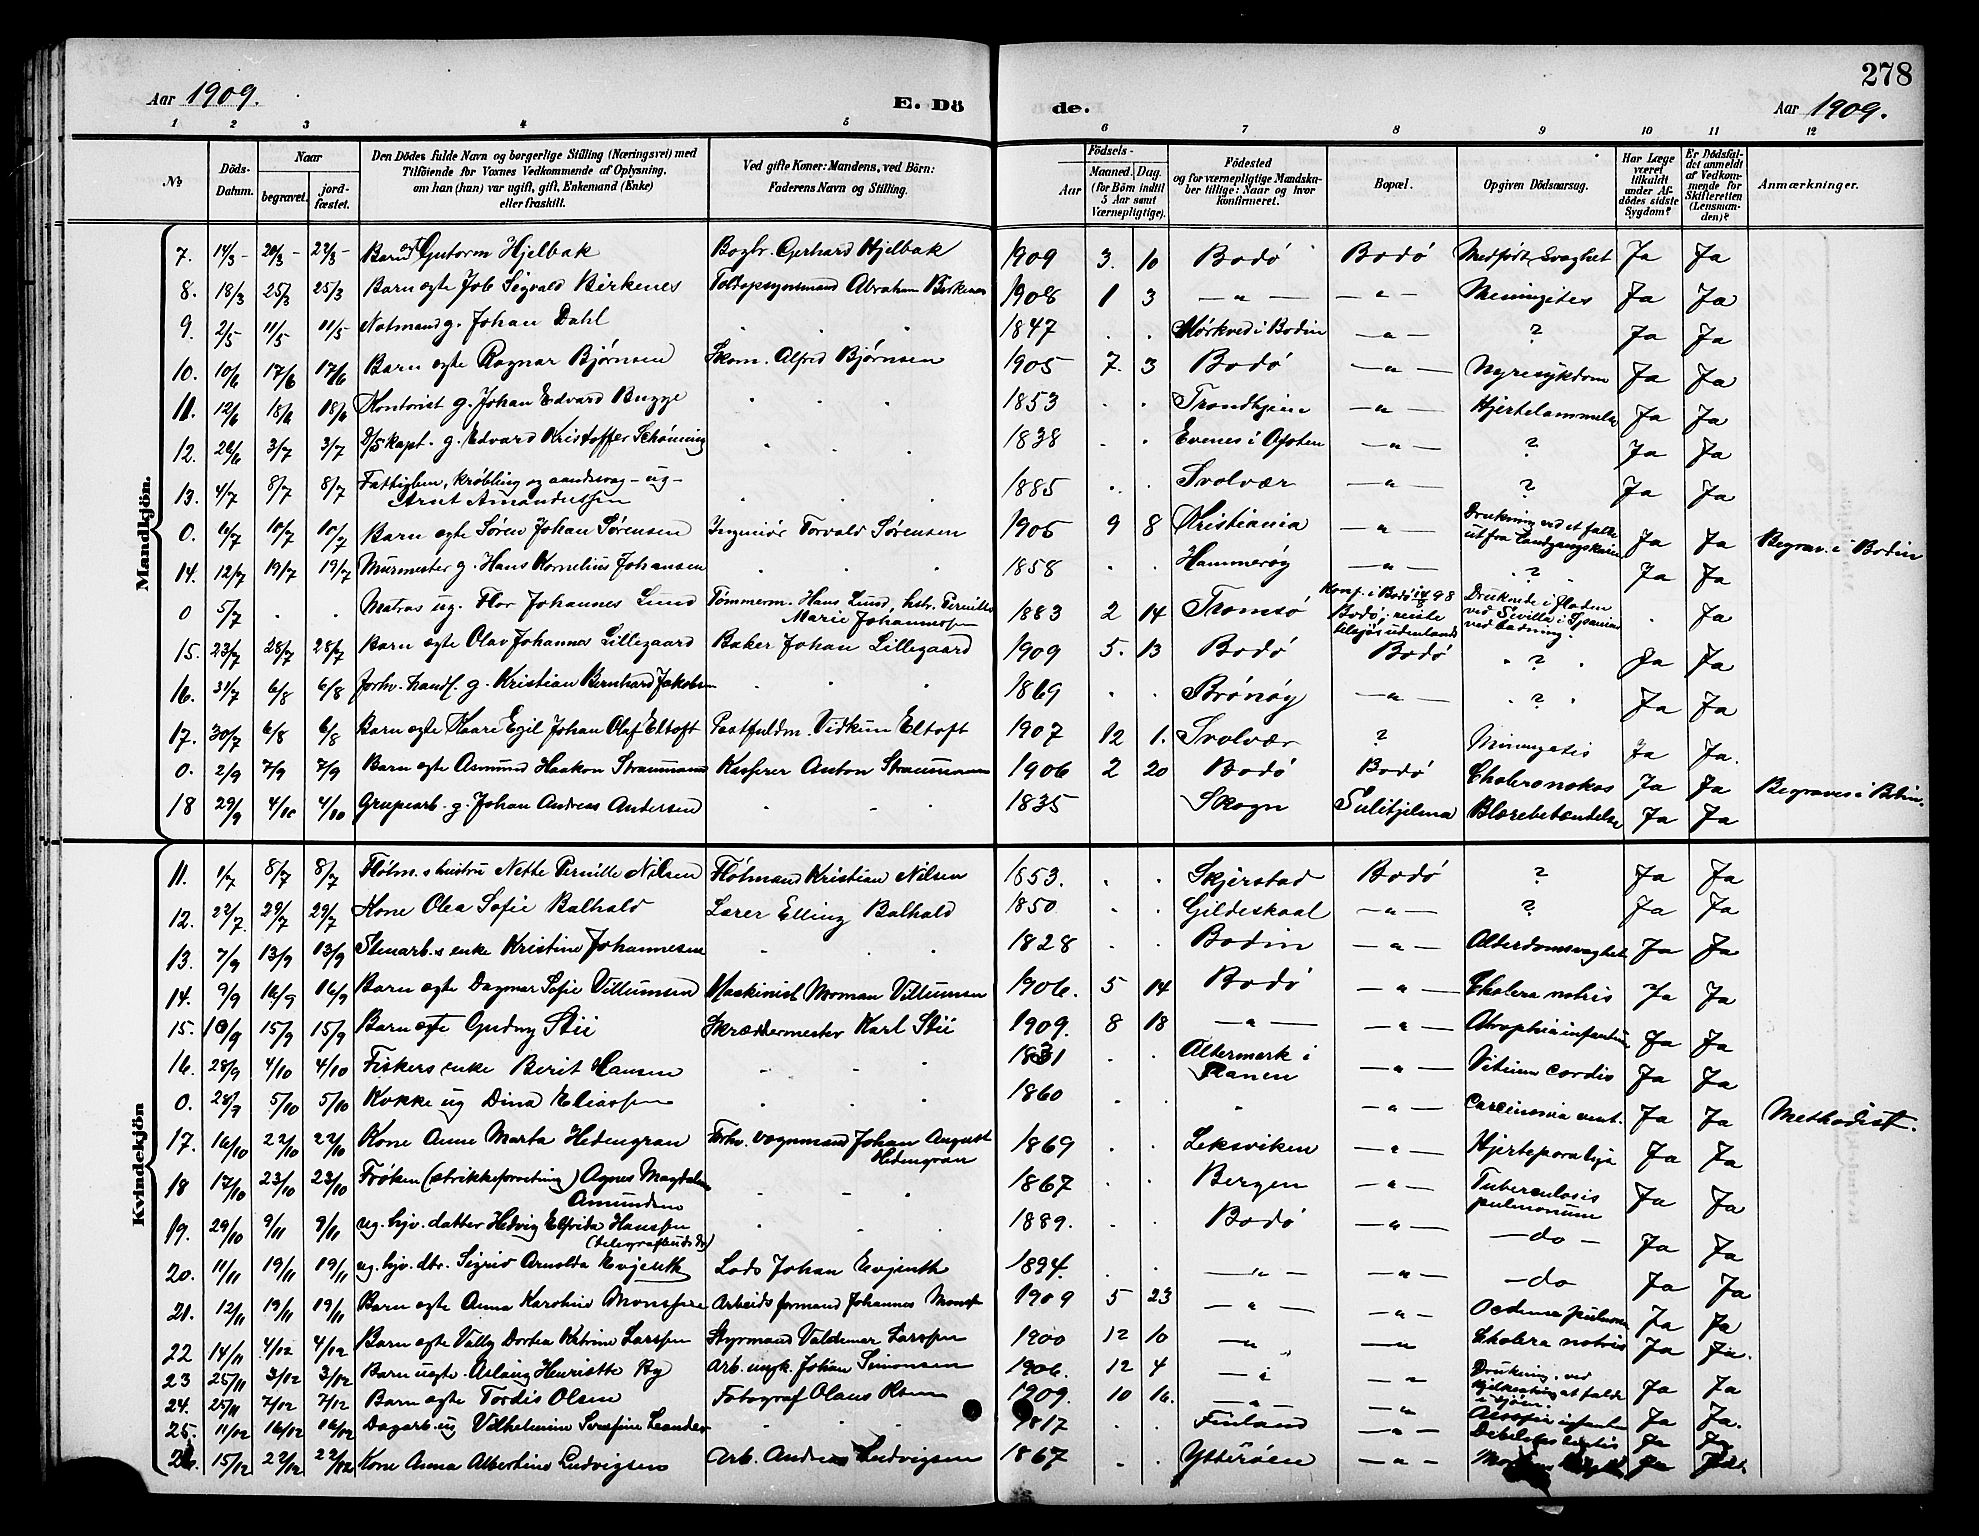 278
Aar 1909. E. Dö de. Aar 1909.
1 2 3 4 5 6 7 8 9 10 11 12
No Döds-Datum. Naar begravet. jordfæstet. Den Dödes fulde Navn og borgerlige Stilling (Næringsvei) med Tilföiende for Voxnes Vedkommende af Oplysning, om han (hun) var ugift, gift, Enkemand (Enke) eller fraskilt. Ved gifte Koner: Mandens, ved Börn: Faderens Navn og Stilling. Födsels- Aar Maaned. Dag. (for Börn indtil 5 Aar samt Værnepligtige). Födested og for værnepligtige Mandskaber tillige: Naar og hvor konfirmeret. Bopæl. Opgiven Dödsaarsag. Har Læge været tilkaldt under Afdödes sidste Sygdom? Er Dödsfaldet anmeldt af Vedkommende for Skifteretten (Lensmanden)? Anmærkninger.
Mandkjön.
7. 14/3 - 20/3 - 22/3 - Barn egt Gutorm Hjelbak Bogbr. Gerhard Hjelbak 1909 3. 10 Bodö Bodö Medfödt Svaghet Ja Ja
8. 18/3 25/3 25/3 Barn egte Job Sigvald Birkenes Toldopsynsmand Abraham Birkenes 1908 1 3 — " — — " — Meningites Ja Ja
9. 2/5 11/5 11/5 Notmand g. Johan Dahl 1847 Mörkved i Bodin — " — ? Ja Ja
10. 10/6 17/6 17/6 Barn egte Ragnar Bjørnsen Skom. Alfred Bjørnsen 1905 7. 3 Bodö — " — Nyresykdom Ja Ja
11. 12/6 18/6 18/6 Kontorist g. Johan Edvard Bugge 1853 Trondhjem — " — Hjertelammelse Ja Ja
12. 26/6 3/7 3/7 D/Skapt. g. Edvard Kristoffer Schønning 1838 Evenes i Ofoten — " — ? Ja Ja
13. 4/7 8/7 8/7 Fattiglem, krøbling og aandssvag - ug - Arnt Amandussen 1885 Svolvær — " — ? Ja Ja
0. 6/7 10/7 10/7 Barn egte Sören Johan Sørensen Ingeniör Torvald Sörensen 1905 9 8 Kristiania — " — Drukning ved et falde ut fra Landgangskaien Ja Ja Begrav. i Bodin
14. 12/7 19/7 19/7 Murmester g. Hans Kornelius Johansen 1858 Hammerøy — " — ? Ja Ja
0 5/7 Matros ug. Flor Johannes Lund Tømmerm. Hans Lund, hstr. Pernille Marie Johannessen 1883 2 14 Tromsö Konf. i Bodö 98 Bodö; reiste tilsjös udenlands Druknede i floden ved Sevilla i Spanien ved badning. Ja
15. 23/7 28/7 28/7 Barn egte Olav Johannes Lillegaard Baker Johan Lillegaard 1909 5. 13 Bodö Bodö ? Ja Ja
16. 31/7 6/8 6/8 Forhv. handl. g. Kristian Bernhard Jakobsen 1869 Brönöy — " — ? Ja Ja
17. 30/7 6/8 6/8 Barn egte Kaare Egil Johan Olaf Eltoft Postfuldm. Vidkun Eltoft 1907 12 1. Svolvær ? Miningetis Ja Ja.
0. 2/9 7/9 7/9 Barn egte Asmund Haakon Straumann Kasserer Anton Straumann 1906 2 20 Bodö Bodö Cholera nokos Ja Ja Begraves i Bodin.
18 29/9 4/10 4/10 Grupearb. g. Johan Andreas Andersen 1835 Skogn Sulitjelma Blærebetændelse Ja Ja
Kvindekjön
11. 1/7 8/7 8/7 Fløtm.s hustru Nette Pernille Nilsen Fløtmand Kristian Nilsen 1853. Skjerstad Bodö ? Ja Ja
12. 22/7 29/7 29/7 Kone Olea Sofie Balhald Lærer Elling Balhald 1850 Gildeskaal — " — ? Ja Ja
13. 7/9 13/9 13/9 Stenarb.s enke Kristine Johannesen 1828 Bodin — " — Alterdomsvaghet Ja Ja
14. 9/9 16/9 16/9 Barn egte Dagmar Sofie Villumsen Maskinist Norman Villumsen 1906. 5 14 Bodö — " — Cholera notris Ja Ja
15. 10/9 15/9 15/9 Barn egte Gudny Stii Skræddermester Karl Stii 1909. 8 18 — " — — " — Atrophia infantum Ja Ja
16. 28/9 4/10 4/10 Fiskers enke Berit Hansen 1831 Altermark i Ranen — " — Vitium cordis Ja Ja
0. 28/9 5/10 5/10 Kokke ug Dina Eliassen 1860 — " — Carcinomia vent. Ja Ja Methodist.
17. 16/10 22/10 22/10 Kone Anne Marta Hedengran Forhv. vognmand Johan August Hedengran 1869 Leksviken — " — Hjerteparalyse Ja Ja
18 17/10 23/10 23/10 Frøken (strikkeforretning) Agnes Magdalene Amundsen 1867 Bergen — " — Tuberculosis pulmonum Ja Ja
19. 29/10 9/11 9/11 ug. hjv. datter Hedvig Elfrida Hanssen (telegrafbuds dr.) 1889. Bodö — " — — do — Ja Ja
20. 11/11 19/11 19/11 ug. hjv. dtr. Sigrid Arnolda Evjenth Lods Johan Evjenth 1894. — " — — " — — do Ja Ja
21. 12/11 19/11 19/11 Barn egte Anna Karoline Monssen Arbeidsformand Johannes Monssen 1909 5 23 — " — — " — Oedema pulmon Ja Ja
22 14/11 4/12 4/12 Barn egte Vally Dortea Katrine Larssen Styrmand Valdemar Larssen 1900 12 10 — " — — " — Cholera notris Ja Ja.
23 25/11 3/12 3/12 Barn uegte. Aslaug Henriette By Arb. ungk. Johan Simonsen 1906. 12 4 — " — — " — Drukning, ved at falde i sjöen. Ja Ja
24. 25/11 7/12 7/12 Barn egte Tordis Olsen Fotograf Olaus Olsen 1909. 10 16. — " — — " — Ja Ja.
25. 11/12 16/12 16/12 Dagarb. ug Vilhelmine Serafine Leander 1817 Finland — " — Ja Ja
26 15/12 22/12 22/12 Kone Anna Albertine Ludvigsen Arb. Andreas Ludvigsen 1867 Ytterøen — " — Ja